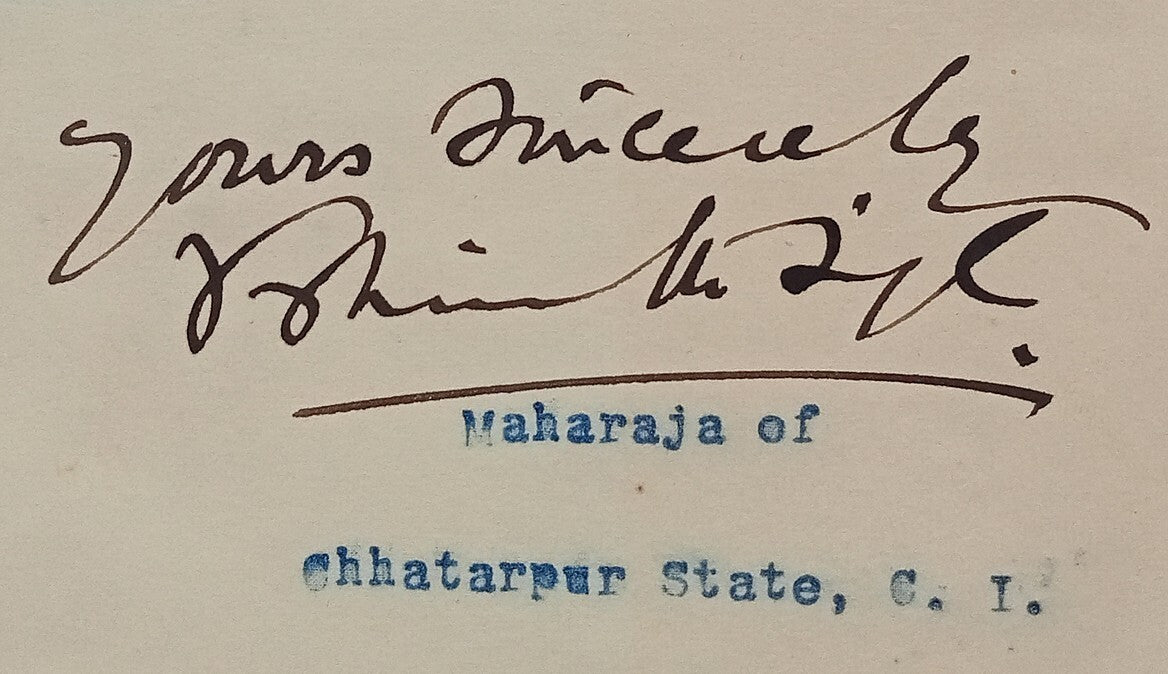 Yours Sincerely
Singh
Maharaja of
Chhatarpur State, C. I.